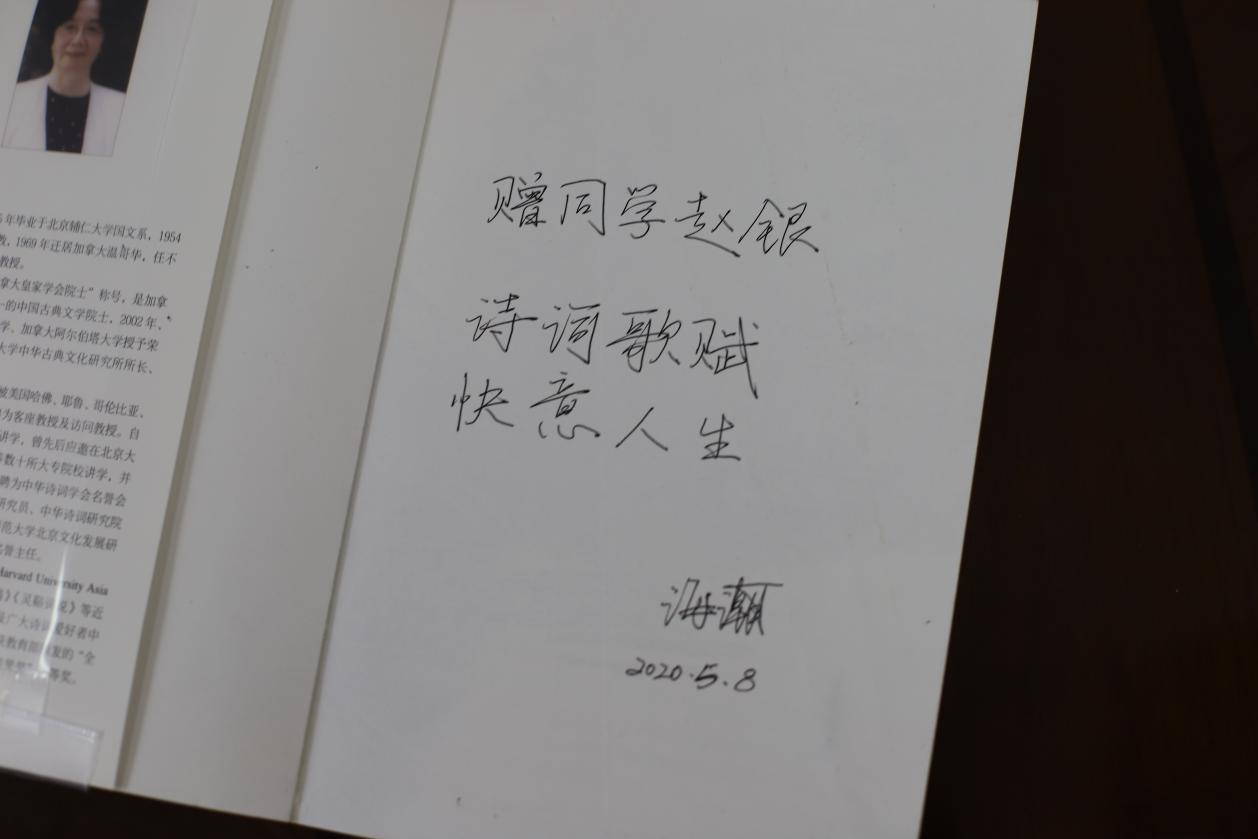 5年毕业于北京辅仁大学国文系，1954
教，1969年迁居加拿大温哥华，任不
教授。
拿大皇家学会院士”称号，是加拿
一的中国古典文学院士，2002年、
学、加拿大阿尔伯塔大学授予荣
大学中华古典文化研究所所长、
被美国哈佛、耶鲁、哥伦比亚、
为客座教授及访问教授。自
讲学，曾先后应邀在北京大
等数十所大专院校讲学，并
聘为中华诗词学会名誉会
研究员、中华诗词研究院
范大学北京文化发展研
名誉主任。
Harvard University Asia
》《灵谿词说》等近
及广大诗词爱好者中
获教育部颁发的“全
等奖。
赠同学赵银
诗词歌赋
快意人生
海潮
2020.5.8